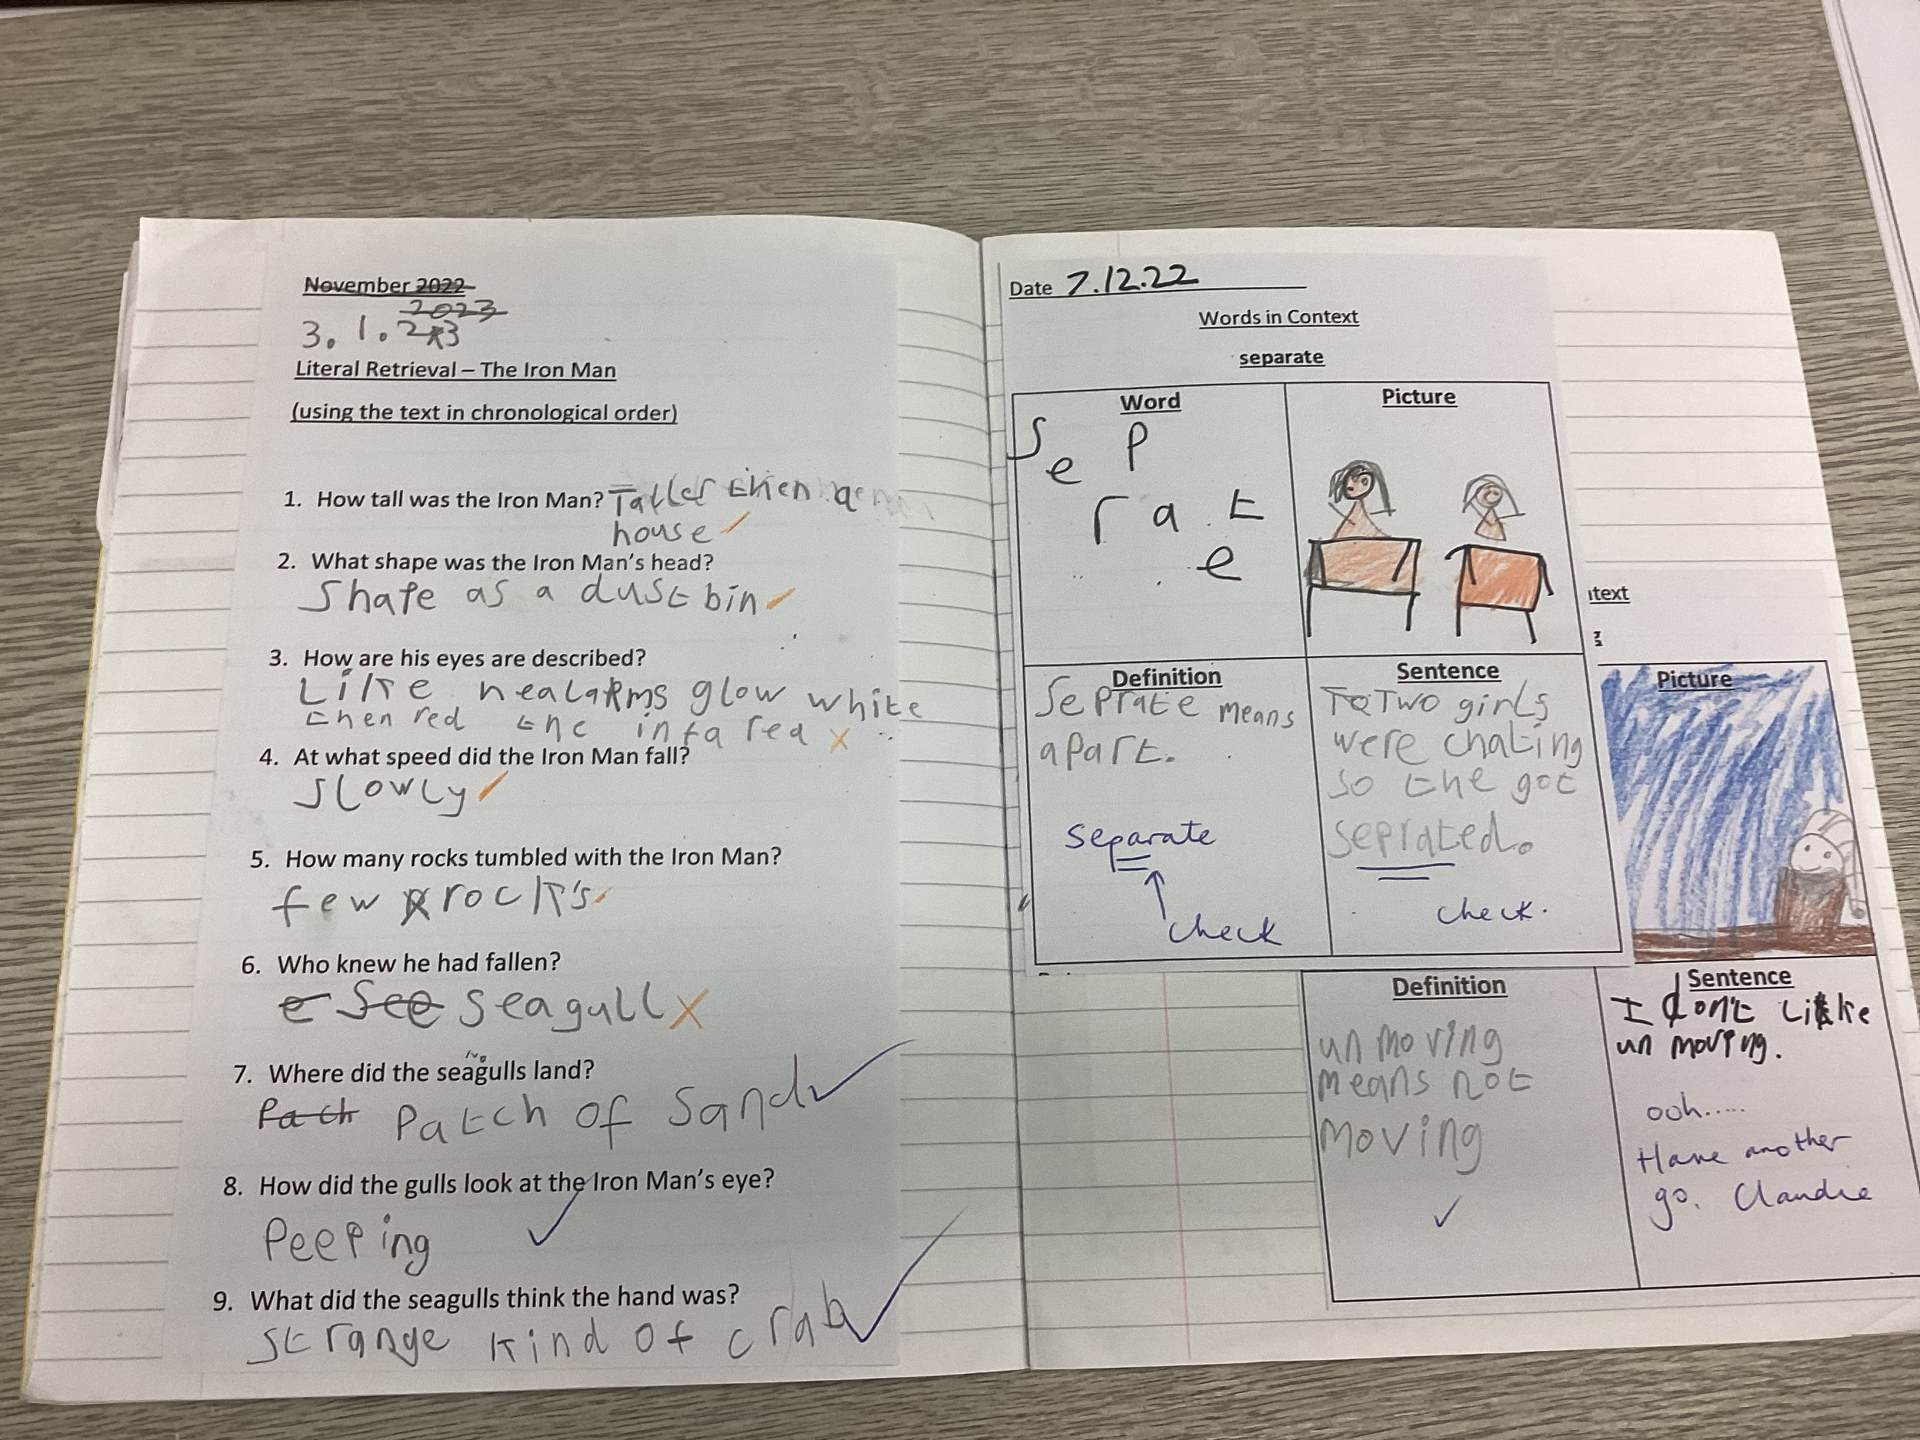 November 2022
2023
3. 1. 23
Literal Retrieval – The Iron Man
(using the text in chronological order)
1. How tall was the Iron Man? Taller then a
house
2. What shape was the Iron Man's head?
Shape as a dust bin
3. How are his eyes are described?
Like glow white
then red the infa red x
4. At what speed did the Iron Man fall?
Slowly
5. How many rocks tumbled with the Iron Man?
few rock's
6. Who knew he had fallen?
e See seagull x
7. Where did the seagulls land?
Pach Patch of Sand
8. How did the gulls look at the Iron Man's eye?
Peeping
9. What did the seagulls think the hand was?
Strange kind of crab
Date 7.12.22
Words in Context
separate
Word
Se P
r a t
e
Picture
Definition
Seprate means
apart.
separate
check
Sentence
To Two girls
were chating
so the got
seprated.
check.
text
Picture
Definition
un moving
means not
moving
Sentence
I don't like
un moving.
ooh.....
Have another
go. Claudie